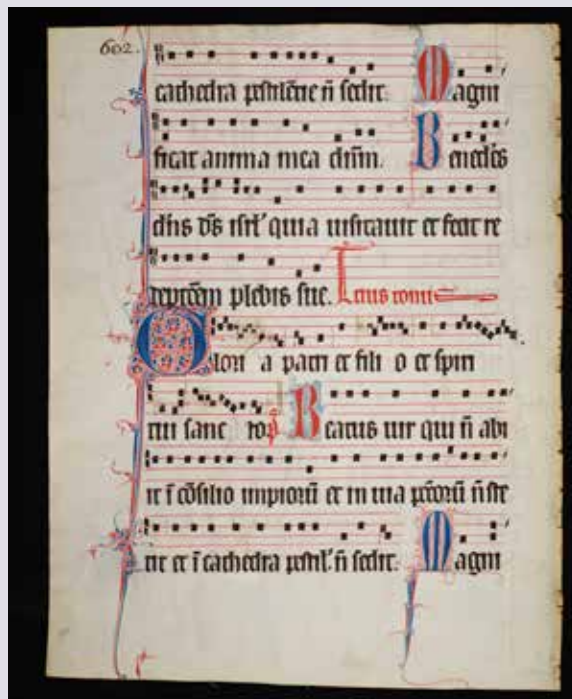 602.
cathedra pestilēcie n̄ sedit. Magni
ficat anima mea dn̄m. Benedc̄s
dn̄s ds̄ isrl' quia uisitauit et fecit re
deptōem plebis sue. Tcius tonus
Glori a patri et fili o et spiri
tui sanc to Beatus uir qui n̄ abi
it ī cōsilio impiorū et in uia pctorū n̄ ste
tit et ī cathedra pestil' n̄ sedit. Magni